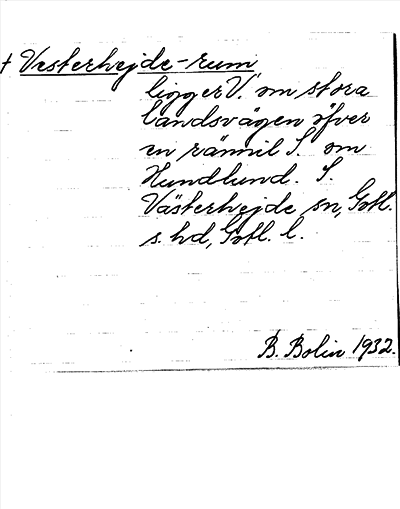 + Vesterhejde-rum
ligger V. om stora
landsvägen öfver
en rännil S. om
Hundlund. S.
Västerhejde sn, Gotl.
s. hd, Gotl. l.
B. Bolin 1932.